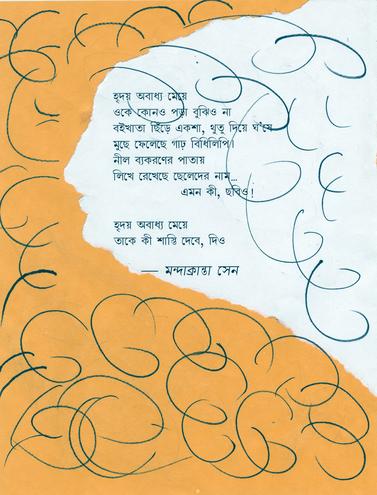 হৃদয় অবাধ্য মেয়ে
ওকে কোনও পড়া বুঝিও না
বইখাতা ছিঁড়ে একশা, থুতু দিয়ে ঘ'ষে
মুছে ফেলেছে গাঢ় বিধিলিপি।
নীল ব্যকরণের পাতায়
লিখে রেখেছে ছেলেদের নাম...
এমন কী, ছবিও!
হৃদয় অবাধ্য মেয়ে
তাকে কী শাস্তি দেবে, দিও
— মন্দাক্রান্তা সেন